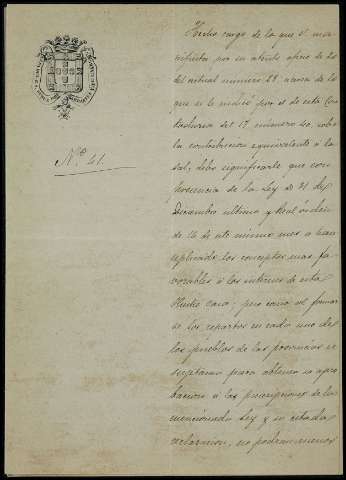 Nº 41.
Hecho cargo de lo que V. ma-
nifiesta por su atento oficio de 20
del actual numero 28, acerca de lo
que se le pidió por el de esta Con-
taduria del 17 número 40, sobre
la contribucion equivalente á la
sal, debo significarle que con
presencia de la Ley de 31 de
Diciembre ultimo y Real órden
de 26 de este mismo mes se han
esplicado los conceptos mas fa-
vorables á los intereses de esta
Ilustre Casa; pero como al formar
se los repartos en cada uno de
los pueblos de las provincias se
sugetaran para obtener su apro
bacion á las prescripciones de la
mencionada Ley y su citada
aclaracion, no podran menos